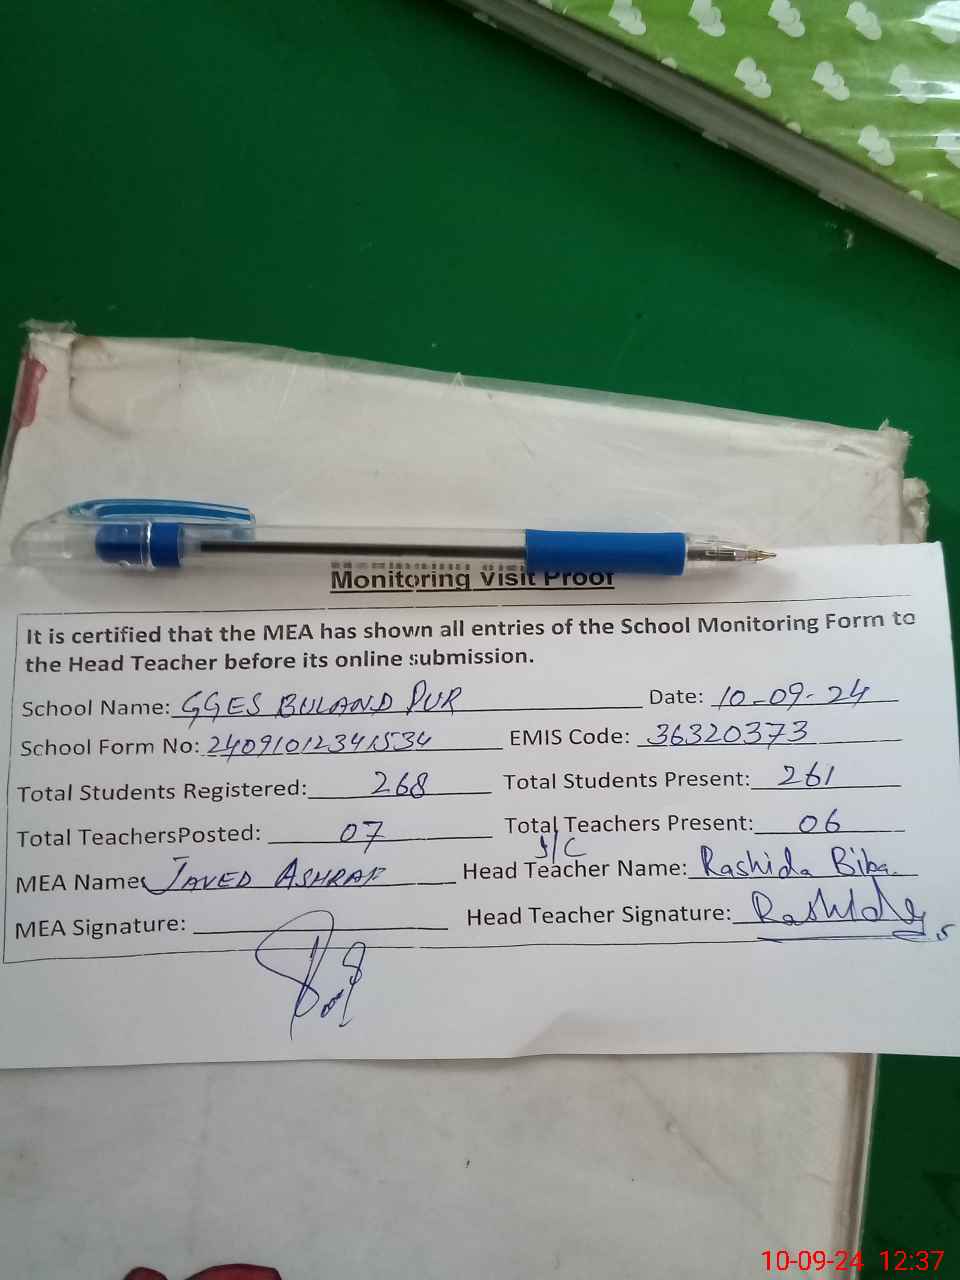 Monitoring Visit Proof
It is certified that the MEA has shown all entries of the School Monitoring Form to
the Head Teacher before its online submission.
School Name: GGES BULAND PUR Date: 10-09-24
School Form No: 24091012341534 EMIS Code: 36320373
Total Students Registered: 268 Total Students Present: 261
Total TeachersPosted: 07 Total Teachers Present: 06
I/C
MEA Name: JAVED ASHRAF Head Teacher Name: Rashida Biba.
MEA Signature: Head Teacher Signature: Rashida
10-09-24 12:37